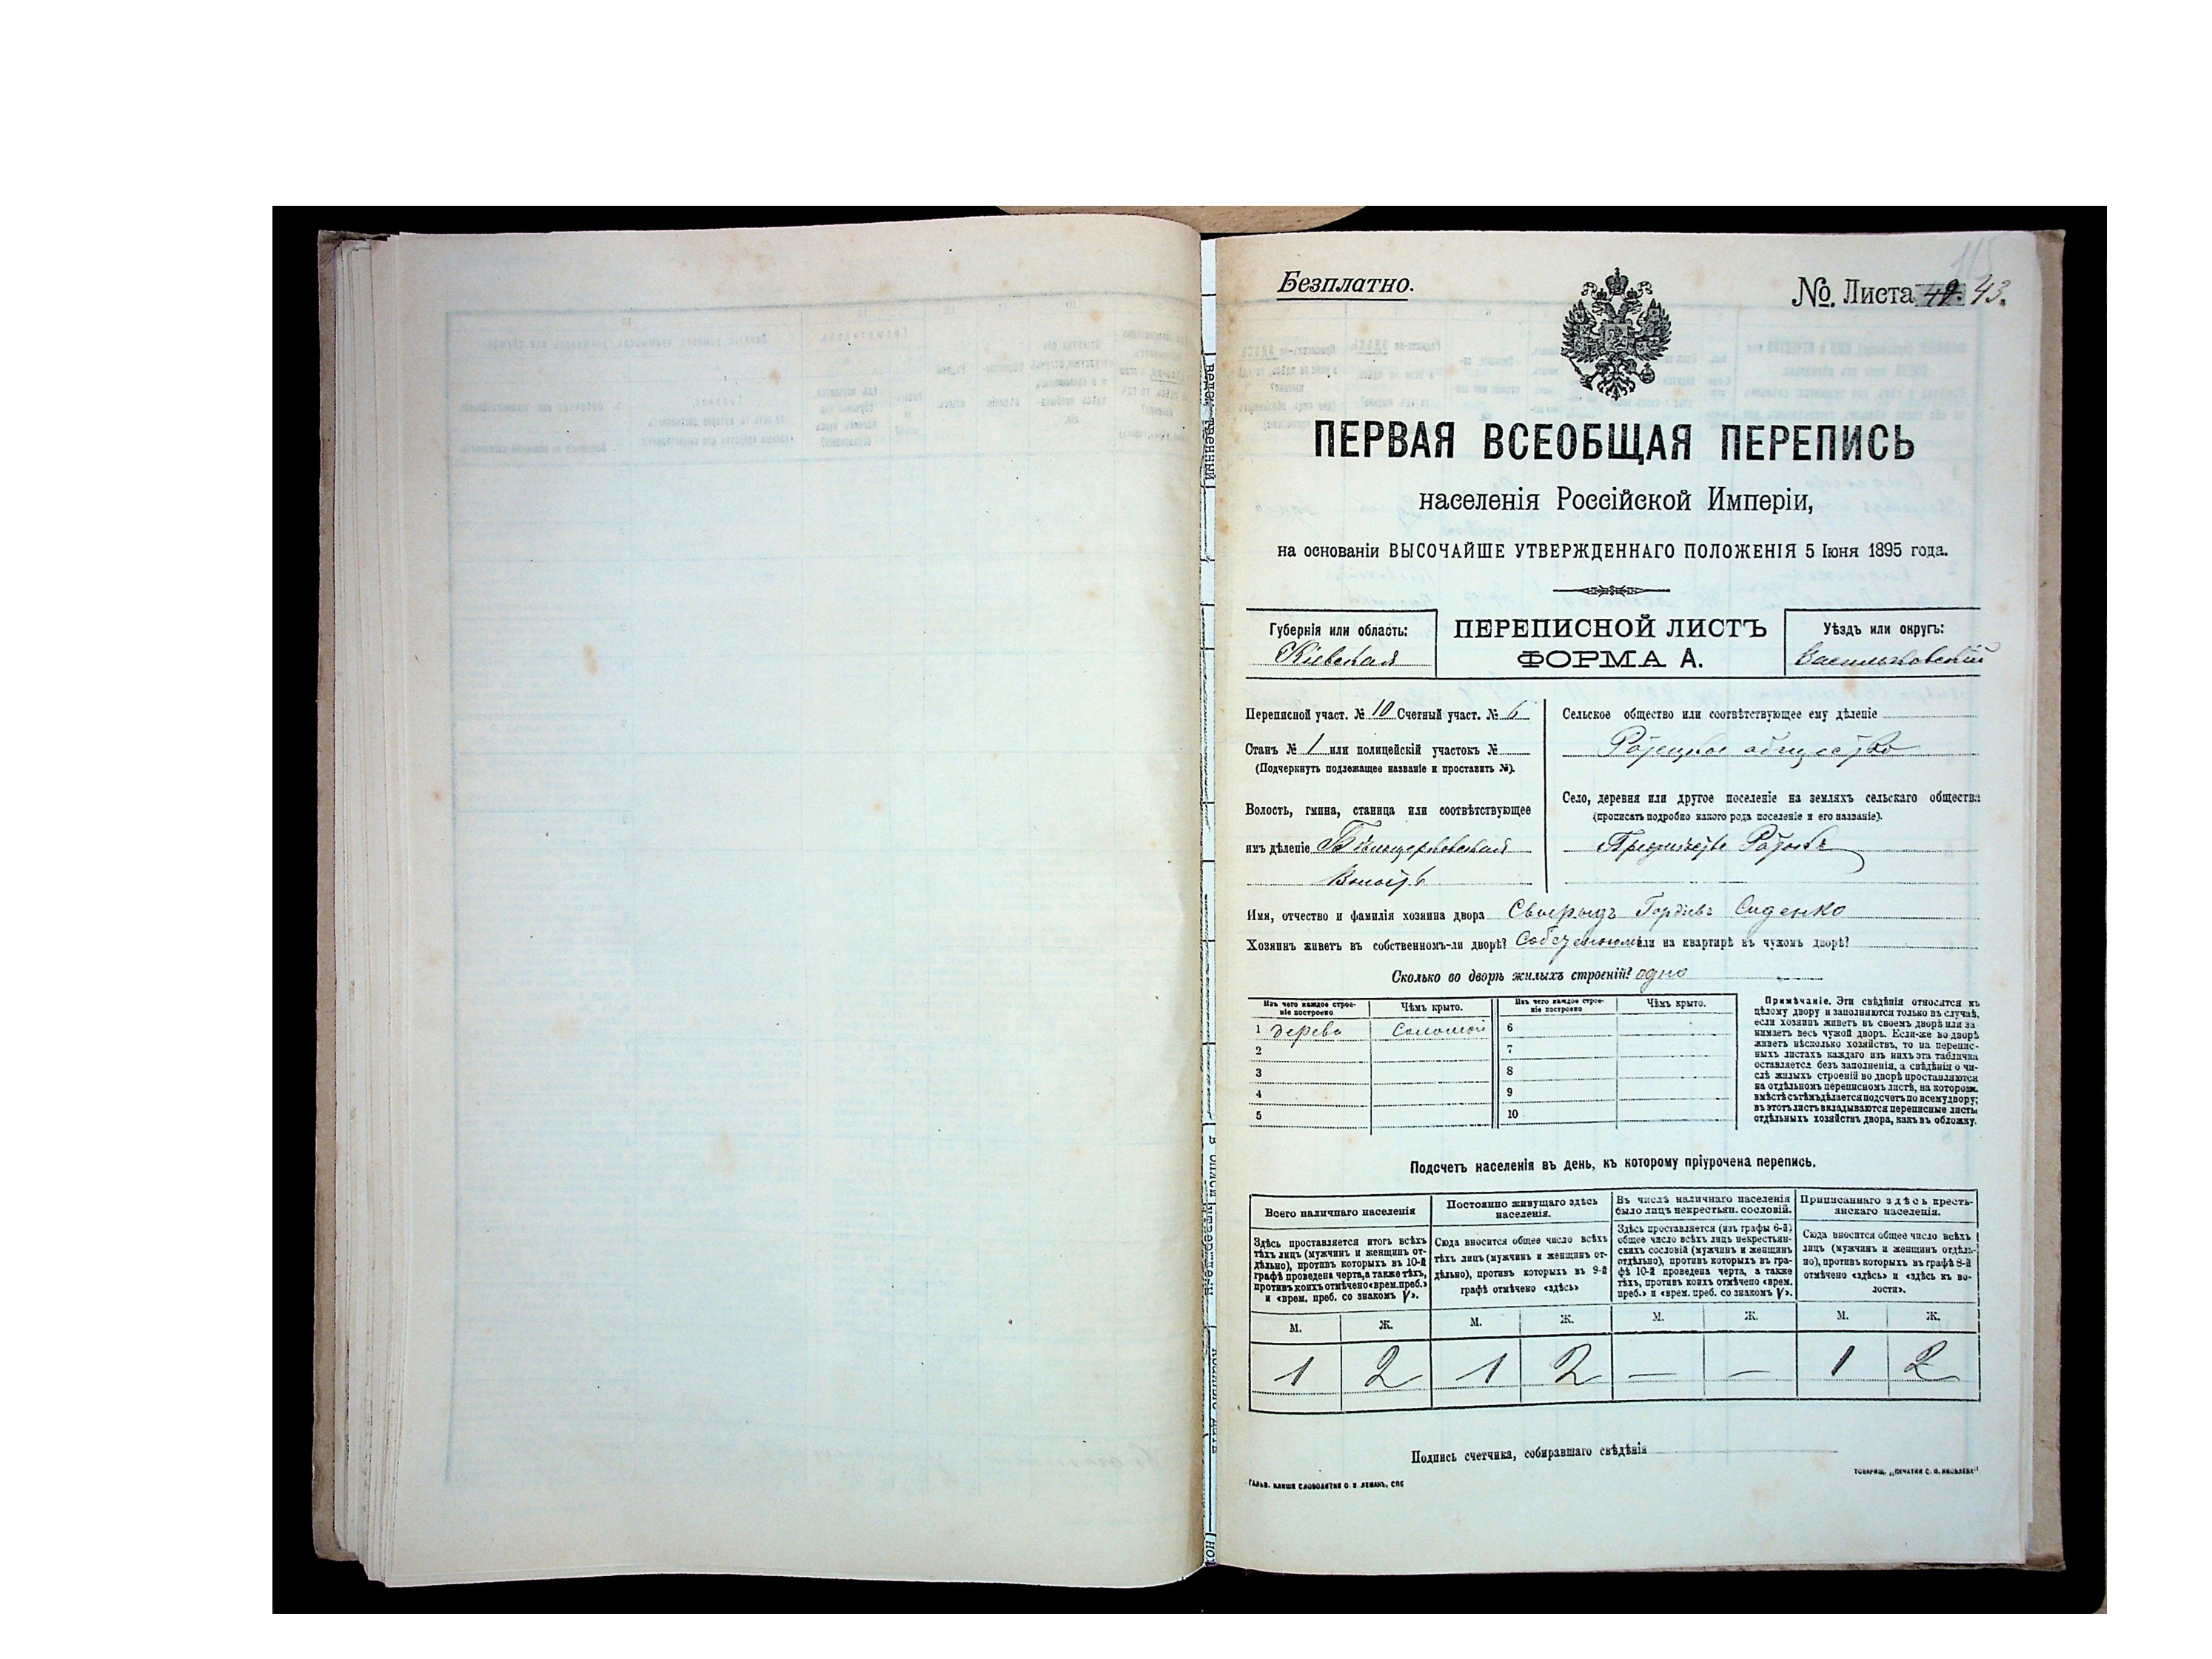 115
Безплатно.
№ Листа 42. 43.
ПЕРВАЯ ВСЕОБЩАЯ ПЕРЕПИСЬ
населенія Россійской Имперіи,
на основаніи ВЫСОЧАЙШЕ УТВЕРЖДЕННАГО ПОЛОЖЕНІЯ 5 Іюня 1895 года.
Губернія или область:
Кіевская
ПЕРЕПИСНОЙ ЛИСТЪ
ФОРМА А.
Уѣздъ или округъ:
Васильковскій
Переписной участ. № 10 Счетный участ. № 6
Станъ № 1 или полицейскій участокъ №
(Подчеркнуть подлежащее названіе и проставить №).
Волость, гмина, станица или соотвѣтствующее
имъ дѣленіе Бѣлоцерковская
Волость
Сельское общество или соотвѣтствующее ему дѣленіе
общество
Село, деревня или другое поселеніе на земляхъ сельскаго общества
(прописать подробно какого рода поселеніе и его названіе).
Предмѣстье Ротокъ
Имя, отчество и фамилія хозяина двора Свиридъ Гордіевъ Сиденко
Хозяинъ живетъ въ собственномъ-ли дворѣ? Собственномъ или на квартирѣ въ чужомъ дворѣ?
Сколько во дворѣ жилыхъ строеній? одно
Изъ чего каждое строе-
ніе построено
Чѣмъ крыто.
Изъ чего каждое строе-
ніе построено
Чѣмъ крыто.
1 дерева Соломой 6
2 7
3 8
4 9
5 10
Примѣчаніе. Эти свѣдѣнія относятся къ
цѣлому двору и заполняются только въ случаѣ,
если хозяинъ живетъ въ своемъ дворѣ или за-
нимаетъ весь чужой дворъ. Если-же во дворѣ
живетъ нѣсколько хозяйствъ, то на перепис-
ныхъ листахъ каждаго изъ нихъ эта табличка
оставляется безъ заполненія, а свѣдѣнія о чи-
слѣ жилыхъ строеній во дворѣ проставляются
на отдѣльномъ переписномъ листѣ, на которомъ
вмѣстѣ съ тѣмъ дѣлается подсчетъ по всему двору;
въ этотъ листъ вкладываются переписные листы
отдѣльныхъ хозяйствъ двора, какъ въ обложку.
Подсчетъ населенія въ день, къ которому пріурочена перепись.
Всего наличнаго населенія
Здѣсь проставляется итогъ всѣхъ
тѣхъ лицъ (мужчинъ и женщинъ от-
дѣльно), противъ которыхъ въ 10-й
графѣ проведена черта, а также тѣхъ,
противъ коихъ отмѣчено «врем. преб.»
и «врем. преб. со знакомъ V».
Постоянно живущаго здѣсь
населенія.
Сюда вносится общее число всѣхъ
тѣхъ лицъ (мужчинъ и женщинъ от-
дѣльно), противъ которыхъ въ 9-й
графѣ отмѣчено «здѣсь»
Въ числѣ наличнаго населенія
было лицъ некрестьян. сословій.
Здѣсь проставляется (изъ графы 6-й)
общее число всѣхъ лицъ некрестьян-
скихъ сословій (мужчинъ и женщинъ
отдѣльно), противъ которыхъ въ гра-
фѣ 10-й проведена черта, а также
тѣхъ, противъ коихъ отмѣчено «врем.
преб.» и «врем. преб. со знакомъ V».
Приписаннаго здѣсь кресть-
янскаго населенія.
Сюда вносится общее число всѣхъ
лицъ (мужчинъ и женщинъ отдѣль-
но), противъ которыхъ въ графѣ 8-й
отмѣчено «здѣсь» и «здѣсь къ во-
лости».
М. Ж. М. Ж. М. Ж. М. Ж.
1 2 1 2 — — 1 2
Подпись счетчика, собиравшаго свѣдѣнія
ГАЛЬВ. КЛИШЕ СЛОВОЛИТНИ О. И. ЛЕМАНЪ, СПБ
ТОВАРИЩ. „ПЕЧАТНЯ С. П. ЯКОВЛЕВА"